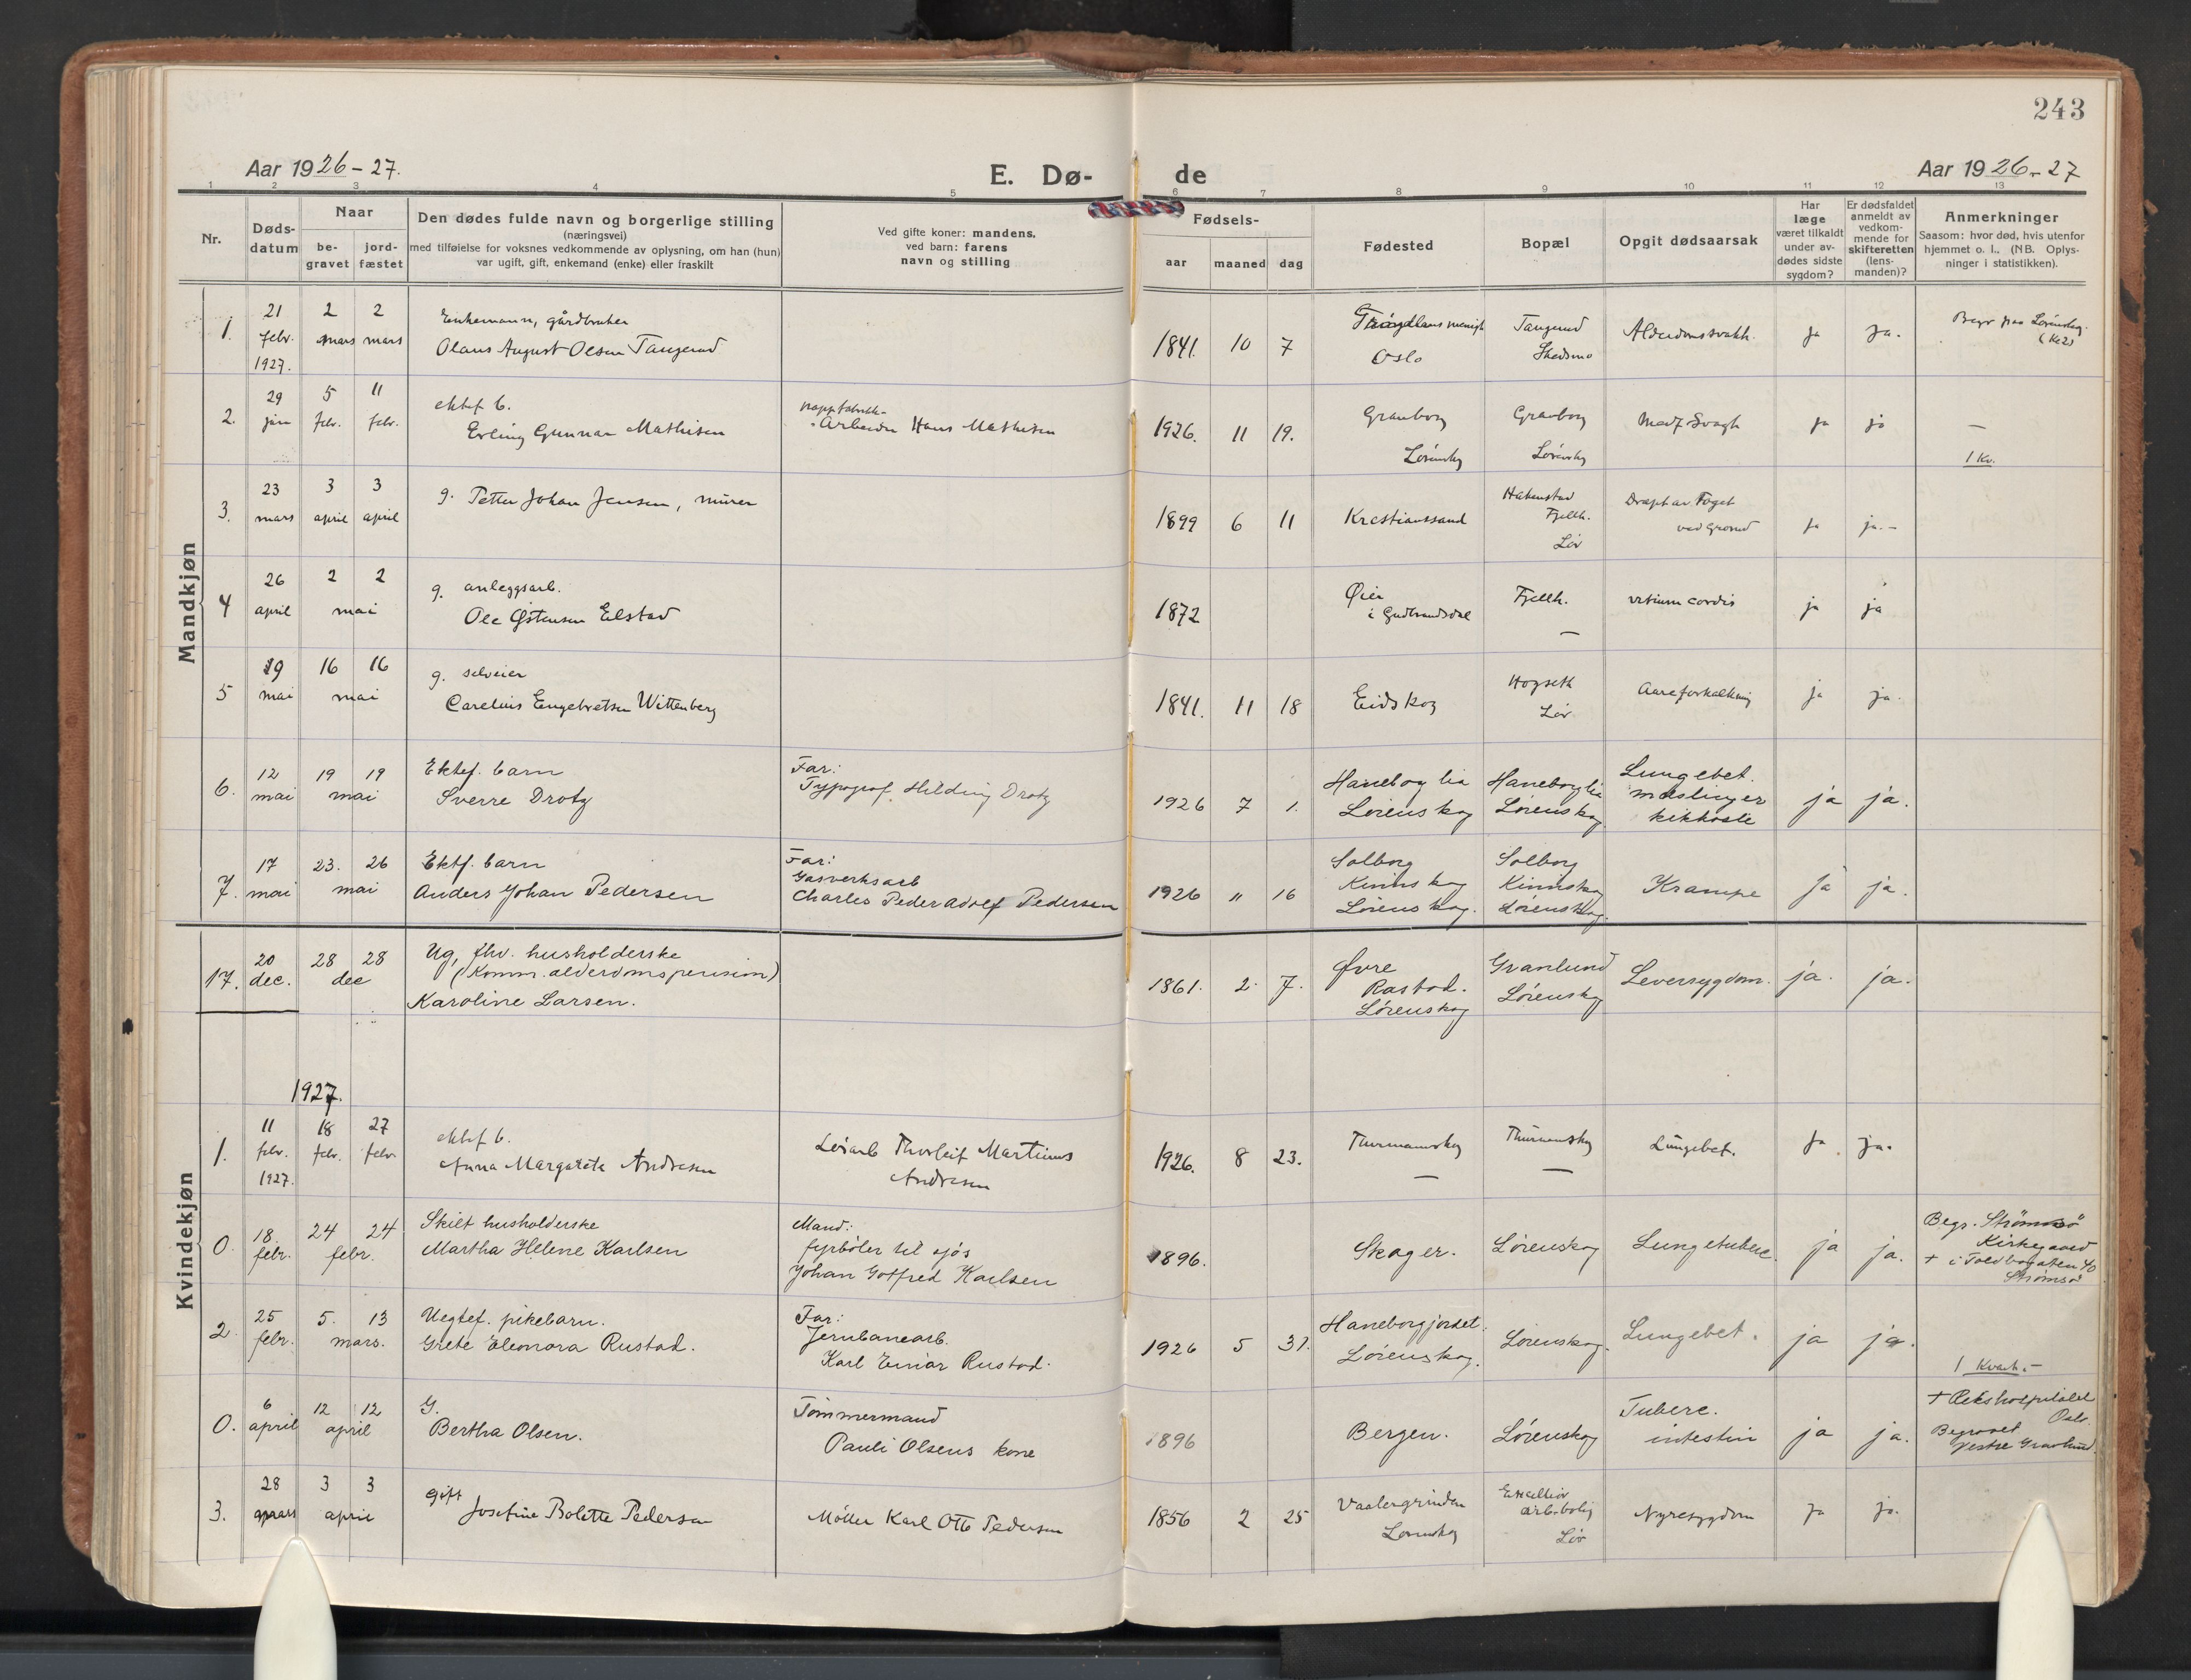 243
Aar 1926-27.
E. Dø-
de
Aar 1926-27
1 2 3 4 5 6 7 8 9 10 11 12 13
Nr.
Døds-
datum
Naar
be-
gravet
jord-
fæstet
Den dødes fulde navn og borgerlige stilling
(næringsvei)
med tilføielse for voksnes vedkommende av oplysning, om han (hun)
var ugift, gift, enkemand (enke) eller fraskilt
Ved gifte koner: mandens,
ved barn: farens
navn og stilling
Fødsels-
aar
maaned
dag
Fødested
Bopæl
Opgit dødsaarsak
Har
læge
været tilkaldt
under av-
dødes sidste
sygdom?
Er dødsfaldet
anmeldt av
vedkom-
mende for
skifteretten
(lens-
manden)?
Anmerkninger
Saasom: hvor død, hvis utenfor
hjemmet o. l., (NB. Oplys-
ninger i statistikken).
Mandkjøn
1. 21 febr. 1927. 2 mars 2 mars
Enkemann, gårdbruker
Olaus August Olsen Tangerud
1841. 10 7
Oslo
Tangerud
Skedsmo
Alderdomssvakh.
ja ja.
2. 29 jan 5 febr. 11 febr.
ektef b.
Erling Gunnar Mathisen
pappfabrikk-
Arbeider Hans Mathisen
1926. 11 19.
Granborg
Lørensk
Granborg
Lørensk
Medf Svagh
ja ja
—
1 Kv.
3. 23 mars 3 april 3 april
g. Petter Johan Jensen, murer
1899 6 11
Kristianssand
Hakenstad
Fjellh.
Lør
Dræpt av Toget
ved Grorud
ja ja.-
4 26 april 2 2 mai
g. anleggsarb.
Ole Østensen Elstad
1872
Øier
i Gudbrandsdal
Fjellh.
—
vitium cordis
ja ja
5 9 mai 16 16 mai
g. selveier
Carelius Engebretsen Wittenberg
1841. 11 18
Eidskog
Hogseth
Lør
Aareforkalkning
ja ja.
6. 12 mai 19 19 mai
Ektef. barn
Sverre Drotz
Far:
Typograf. Hilding Drotz
1926 7 1.
Haneboglia
Lørenskog
Haneborglia
Lørenskog.
Lungebet.
meslinger
kikhoste
ja ja.
7. 17 mai 23. 26 mai
Ektf. barn
Anders Johan Pedersen
Far:
Gasverksarb
Charles Peder Adolf Pedersen
1926 " 16
Solborg
Kinnskog
Lørenskog.
Solborg
Kinnskog
Lørenskog.
Krampe
ja ja.
17. 20 dec. 28 28 dec
Ug, fhv. husholderske
(Komm. alderdomspension)
Karoline Larsen.
1861. 2. 7.
Øvre
Rastad.
Lørenskog
Granlund
Lørenskog
Leversygdom.
ja. ja.
Kvindekjøn
1927.
1. 11 febr. 1927. 18 febr. 27 febr
ektef b.
Anna Margarete Andresen
Løsarb Thorleif Martinus
Andresen
1926. 8 23.
Thurmannskog
—
Thurmannskog
—
Lungebet.
ja. ja.
0. 18. febr. 24 24 febr.
Skilt husholderske
Martha Helene Karlsen
Mand:
fyrbøter til sjøs
Johan Gotfred Karlsen
1896.
Skager.
Lørenskog
Lungetuberc.
ja ja.
Begr. Strømsø
Kirkegaard
+ i Toldbogaten 40
Strømsø
2. 25 febr. 5. 13 mars.
Uegtef. pikebarn.
Grete Eleonora Rustad.
Far:
Jernbanearb.
Karl Einar Rustad.
1926 5 31.
Haneborgjordet.
Lørenskog.
Lørenskog.
Lungebet.
ja ja.
1 Kvart.-
0. 6 april 12 12 april
G.
Bertha Olsen.
Tømmermand
Pauli Olsens kone
1896
Bergen.
Lørenskog
Tuberc.
intestin
ja ja.
+ Rikshospitalet
Oslo.
Begravet
Vestre Gravlund.
3. 28 mars 3 3 april
gift
Josefine Bolette Pedersen
Møller Karl Otto Pedersen
1856 2 25
Vaalergrinden
Lørenskog
Excelsior
arb.bolig
Lør
Nyresygdom
ja ja.